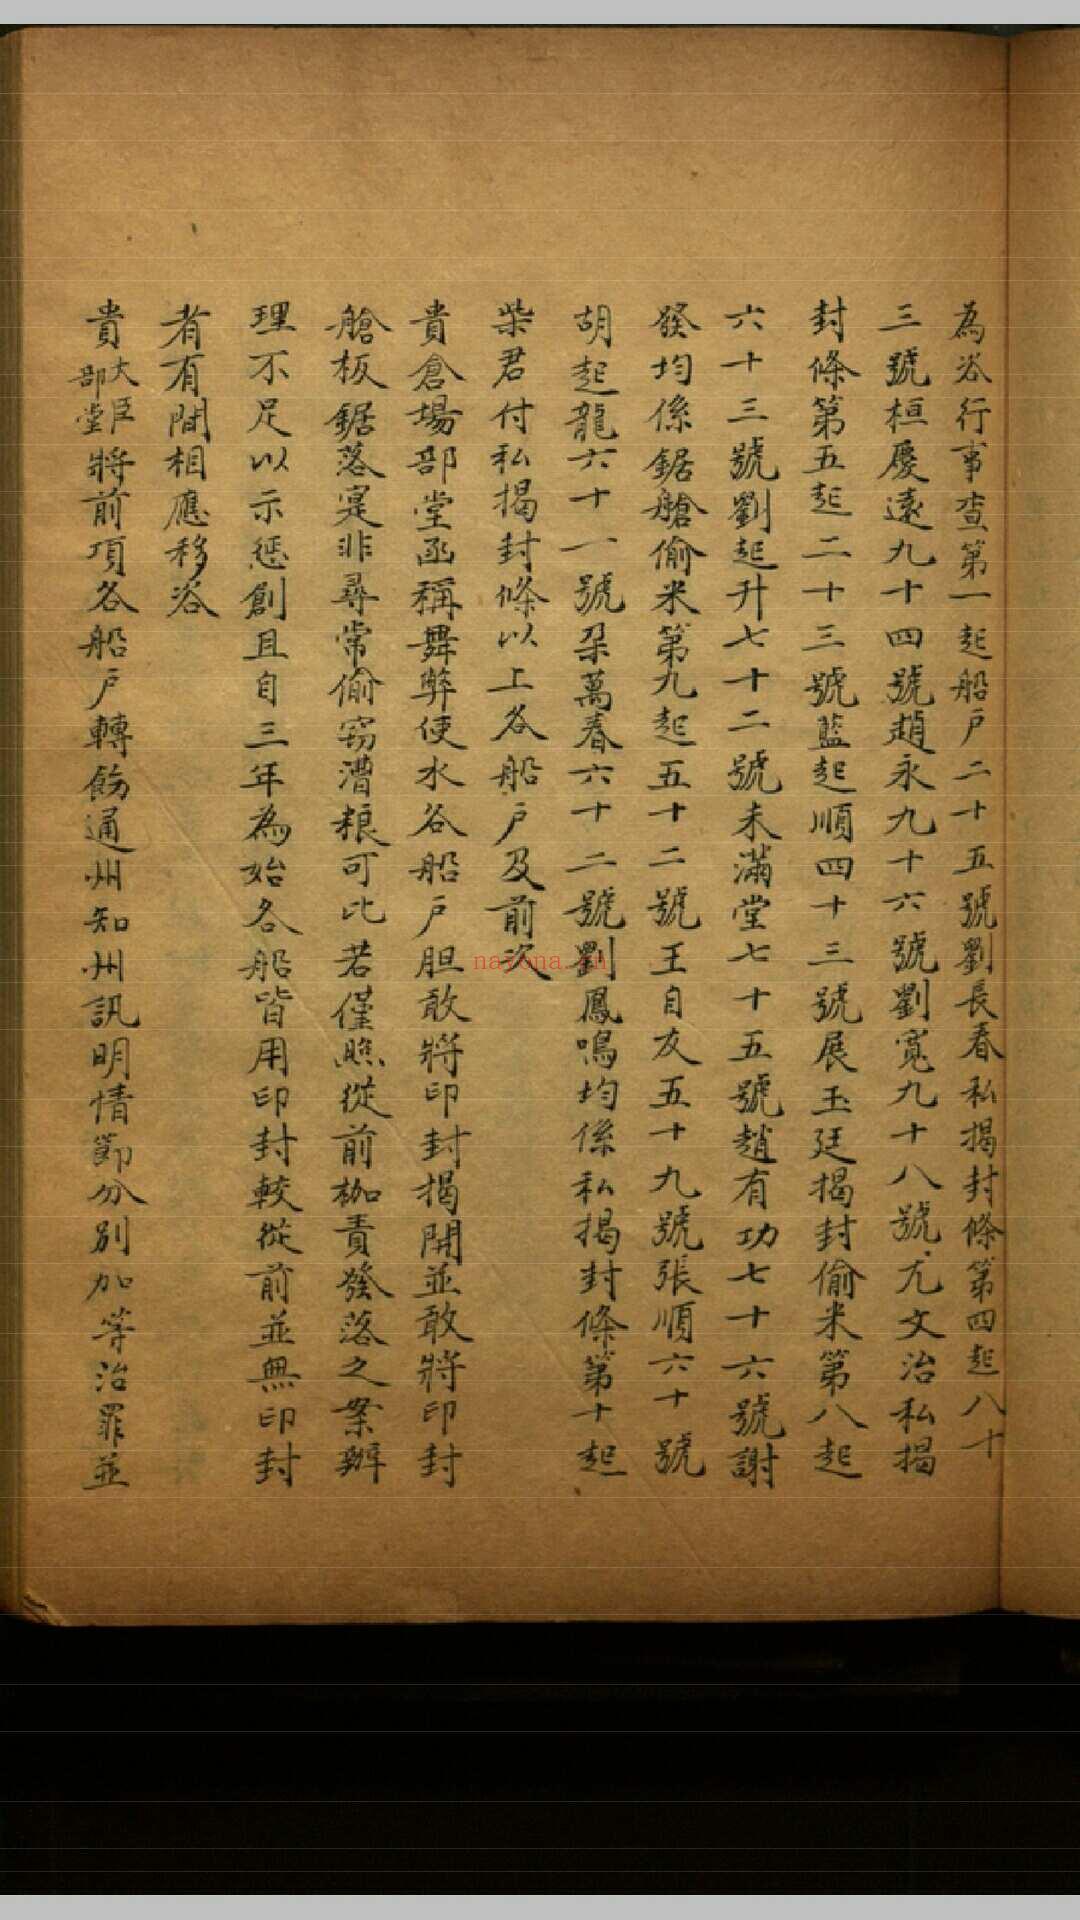 為咨行事查第一起船戶二十五號劉長春私揭封條第四起八十
三號桓慶遠九十四號趙永九十六號劉寬九十八號尤文治私揭
封條第五起二十三號藍起順四十三號展玉廷揭封偷米第八起
六十三號劉起升七十二號未滿堂七十五號趙有功七十六號謝
發均係鋸艙偷米第九起五十二號王自友五十九號張順六十號
胡起龍六十一號朶萬春六十二號劉鳳鳴均係私揭封條第十起
柴君付私揭封條以上各船戶及前次
貴倉場部堂函稱舞弊使水各船戶胆敢將印封揭開並敢將印封
艙板鋸落寔非尋常偷窃漕粮可比若僅照從前枷責發落之案辦
理不足以示懲創且自三年為始各船皆用印封較從前並無印封
者有間相應移咨
貴大臣部堂將前項各船戶轉飭通州知州訊明情節分別加等治罪並
nayona.cn